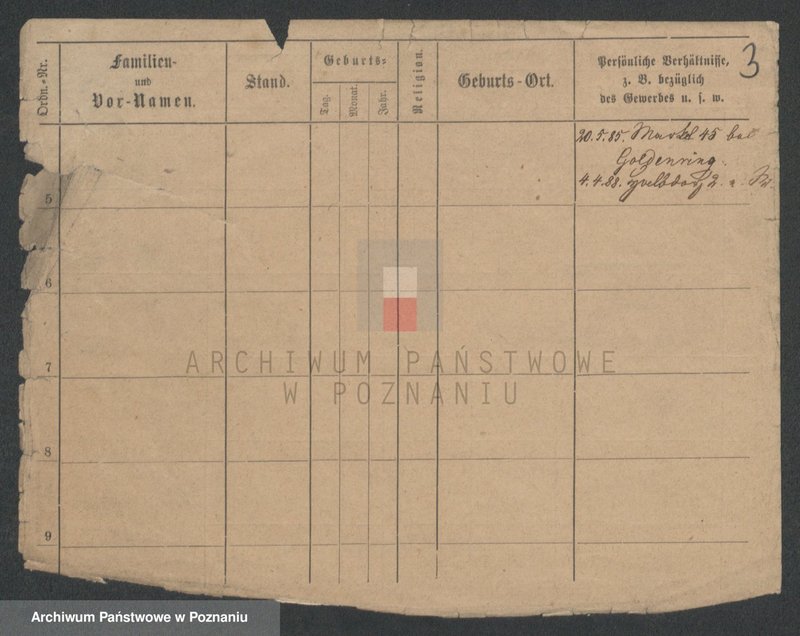 3
Ordn.-Nr.
Familien-
und
Vor-Namen.
Stand.
Geburts-
Tag.
Monat.
Jahr.
Religion.
Geburts-Ort.
Persönliche Verhältnisse,
z. B. bezüglich
des Gewerbes u. s. w.
20.5.85. Markt 45 bei
Goldenring.
4.4.88.
5
6
7
8
9
ARCHIWUM PAŃSTWOWE
W POZNANIU
Archiwum Państwowe w Poznaniu